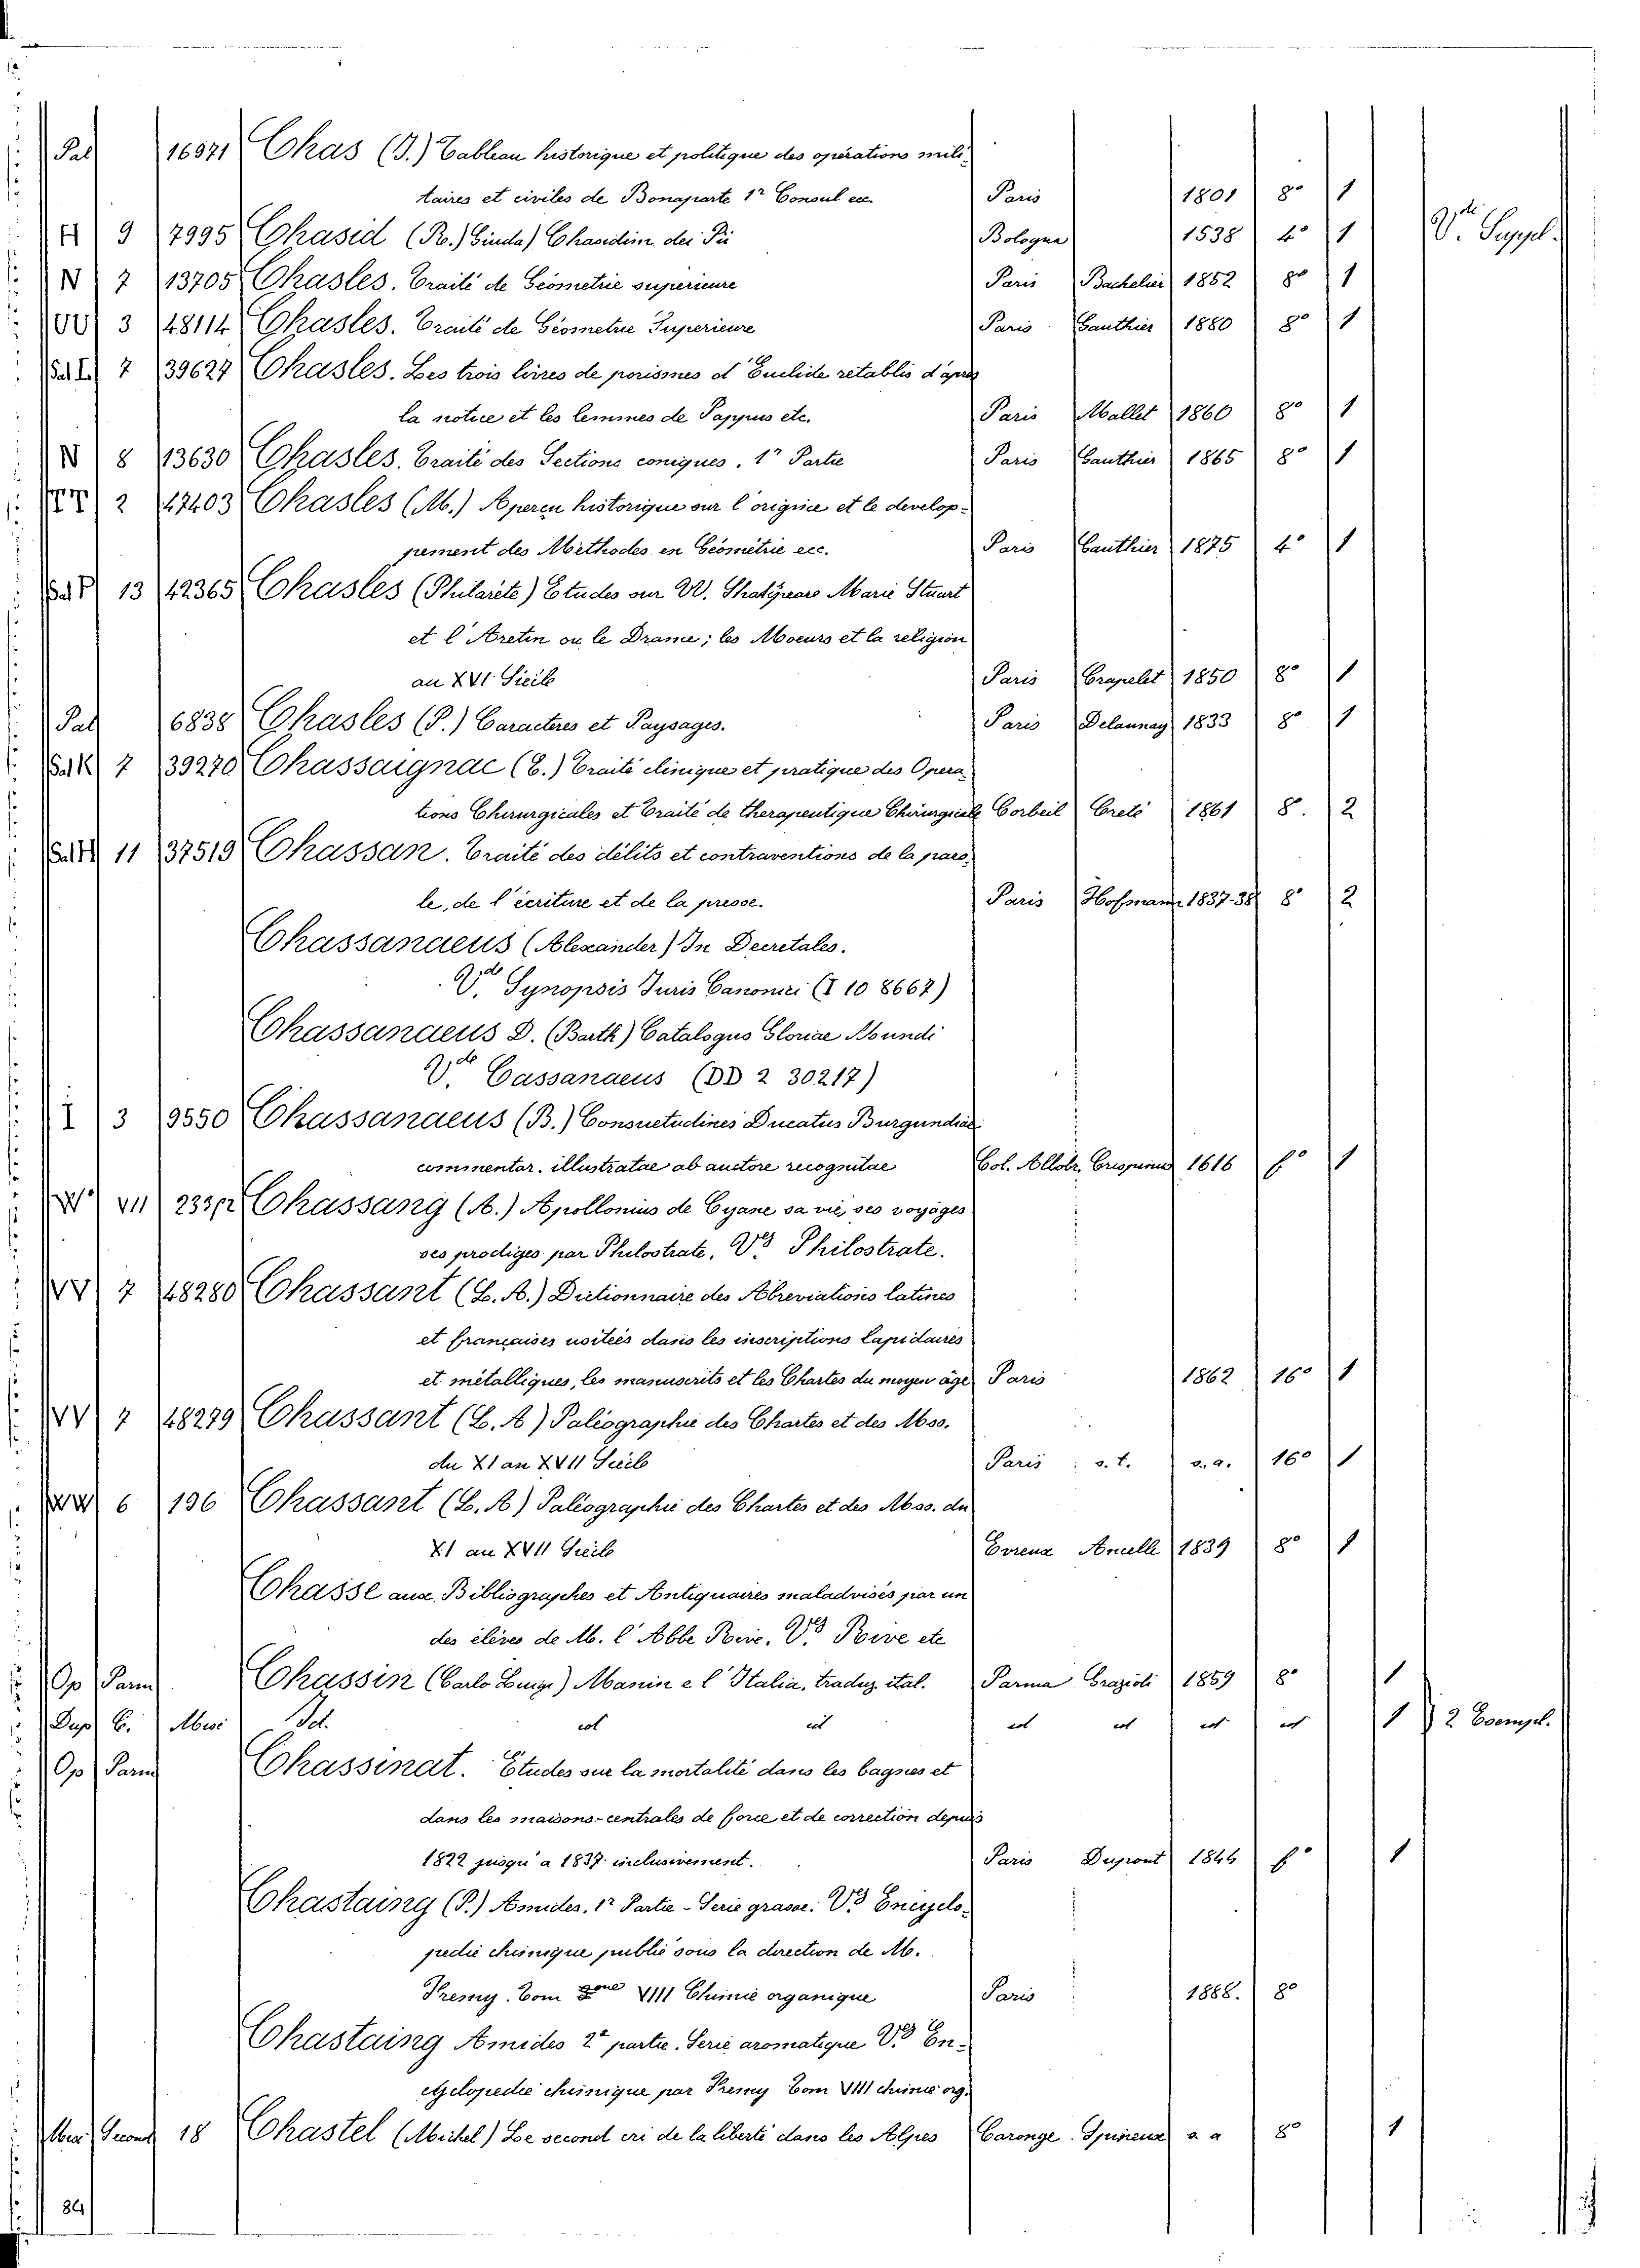 Pal 16971 Chas (J.) Tableau historique et politique des opérations mili-
taires et civiles de Bonaparte 1r Consul ecc. Paris 1801 8° 1
H 9 7995 Chasid (R. Giuda) Chasidim dei Pii Bologna 1538 4° 1 V.de Suppl.
N 7 13705 Chasles. Traité de Géometrie superieure Paris Bachelier 1852 8° 1
UU 3 48114 Chasles. Traité de Géometrie Superieure Paris Gauthier 1880 8° 1
Sal L. 7 39627 Chasles. Les trois livres de porismes d'Euclide retablis d'apres
la notice et les lemmes de Pappus etc. Paris Mallet 1860 8° 1
N 8 13630 Chasles. Traité des Sections coniques. 1r Partie Paris Gauthier 1865 8° 1
TT 2 47403 Chasles (M.) Aperçu historique sur l'origine et le develop-
pement des Méthodes en Géométrie ecc. Paris Gauthier 1875 4° 1
Sal P 13 42365 Chasles (Philarète) Etudes sur W. Shakspeare Marie Stuart
et l'Aretin ou le Drame; les Moeurs et la religion
au XVI Siécle Paris Crapelet 1850 8° 1
Pal 6838 Chasles (P.) Caracteres et Paysages. Paris Delaunay 1833 8° 1
Sal K 7 39270 Chassaignac (E.) Traité clinique et pratique des Opera-
tions Chirurgicales et Traité de therapeutique Chirurgicale Corbeil Creté 1861 8. 2
Sal H 11 37519 Chassan. Traité des délits et contraventions de la paro-
le, de l'écriture et de la presse. Paris Hofmann 1837-38 8° 2
Chassanaeus (Alexander) In Decretales.
V.de Synopsis Juris Canonici (I 10 8667)
Chassanaeus D. (Barth) Catalogus Gloriae Mundi
V.de Cassanaeus (DD 2 30217)
I 3 9550 Chassanaeus (B.) Consuetudines Ducatus Burgundiae
commentar. illustratae ab auctore recognitae Col. Allobr. Crispinus 1616 f° 1
W VII 233/2 Chassang (A.) Apollonius de Tyane sa vie, ses voyages
ses prodiges par Philostrate. V.s Philostrate.
VV 7 48280 Chassant (L. A.) Dictionnaire des Abreviations latines
et françaises usitées dans les inscriptions lapidaires
et métalliques, les manuscrits et les Chartes du moyen âge Paris 1862 16° 1
VV 7 48279 Chassant (L. A) Paléographie des Chartes et des Mss.
du XI au XVII Siécle Paris s. t. s. a. 16° 1
WW 6 196 Chassant (L. A) Paléographie des Chartes et des Mss. du
XI au XVII Siécle Evreux Ancelle 1839 8° 1
Chasse aux Bibliographes et Antiquaires maladvisés par un
des élèves de M. l'Abbe Rive. V.s Rive etc
Op Parm Chassin (Carlo Luigi) Manin e l'Italia, traduz. ital. Parma Grazioli 1859 8° 1
Dupl C. Misc Id. id id id id id id 1 2 Esempl.
Op Parm Chassinat. Études sur la mortalité dans les bagnes et
dans les maisons-centrales de force et de correction depuis
1822 jusqu'a 1837 inclusivement. Paris Dupont 1844 f° 1
Chastaing (P.) Amides. 1r Partie - Serie grasse. V.s Encyclo-
pedie chimique publié sous la direction de M.
Fremy. Tom VIII Chimie organique Paris 1888. 8°
Chastaing Amides 2e partie. Serie aromatique V.s En-
cyclopedie chimique par Fremy Tom VIII chimie org.
Second 18 Chastel (Michel) Le second cri de la liberté dans les Alpes Caronge s. a 8° 1
84